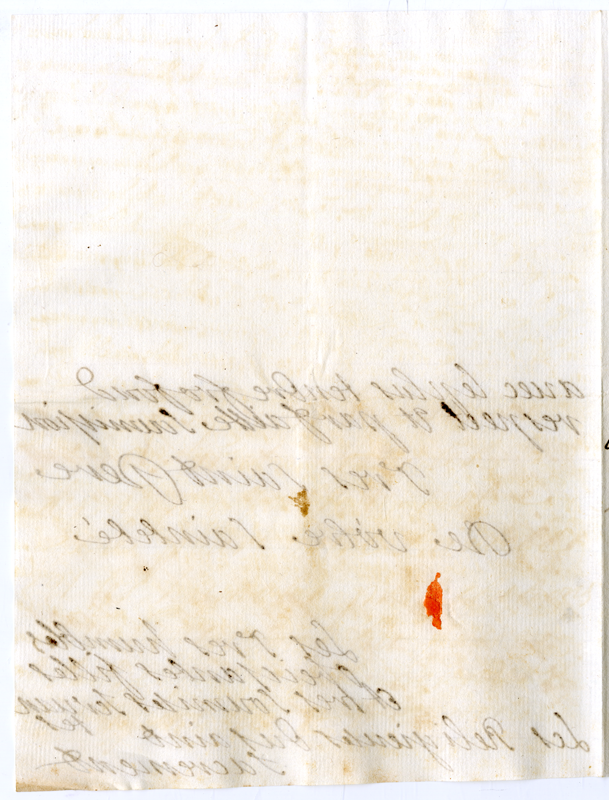 avec le plus tendre profond
respect et parfaitte soumission
Tres Saint Pere
De vôtre Sainteté
Les tres humbles
obeissantes filles
et tres soumises
Les Religieuses du Saint
Sacrement